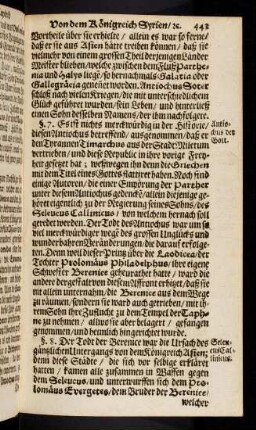 Von dem Königreich Syrien/ ꝛc. 443
Vortheile über sie erhielte / allein es war so ferne/
daß er sie aus Asien hätte treiben können / daß sie
vielmehr von einem grossen Theil derjenigen Länder
Meister blieben / welche zwischen dem Fluß Parthe-
nia und Halys liegt / so hernachmals Galatia oder
Gallogräcia genennet worden. Antiochus Soter
schließ nach vielen Kriegen / die mit unterschiedlichem
Glück geführet wurden / sein Leben / und hinterließ
einen Sohn desselben Namens / der ihm nachfolgete.
§. 7. Es ist nichts merckwürdig in der Historie/
diesen Antiochus betreffend / ausgenommen / daß er
den Tyrannen Timarchus aus der Stadt Miletum
vertrieben / und diese Republic in ihre vorige Frey-
heit gesetzet hat; weßwegen ihn denn die Griechen
mit dem Titul eines Gottes
Antio-
chus der
Gott.
einige Autoren / die einer Empörung der Parther
unter diesem Antiochus gedencken / allein diejenige ge-
höret eigentlich zu der Regierung seines Sohns / des
Seleucus Callinicus / von welchem hernach soll
geredet werden. Der Tod des Antiochus war um so
viel merckwürdiger wegen des grossen Unglücks und
wunderbahren Veränderungen / die darauf erfolge-
ten. Denn weil dieser Printz über die Laodicea der
Tochter Ptolomäus Philadelphus / ihre eigene
Schwester Berenice geheurathet hatte / ward die
andere dergestalt von diesem Affront erhitzet / daß sie
mit allem unternahm / die Berenice aus dem Wege
zu räumen / sondern sie ward auch getrieben / mit ih-
rem Sohn ihre Zuflucht zu dem Tempel der Daph-
ne zu nehmen / allwo sie aber belagert / gefangen
genommen / und heimlich hingerichtet wurde.
§. 8. Der Todt der Berenice war die Ursach des
gäntzlichen Untergangs von dem Königreich Asien;
denn diese Städte / die sich vor selbige erkläret
hatten / kamen alle zusammen in Waffen gegen
dem Seleucus, und unterwurffen sich dem Pto-
lomäus Evergetes, dem Bruder der Berenice/
Seleu-
cus Cal-
linicus.
welcher